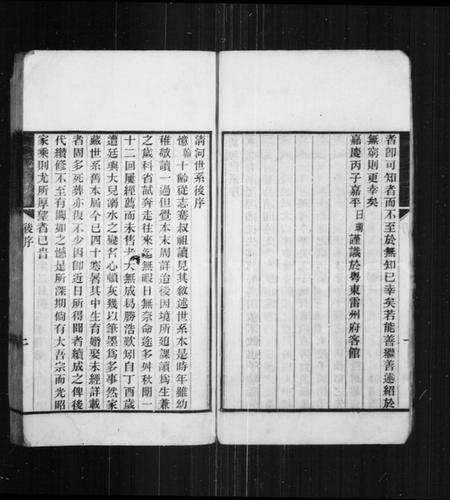 者卽可知者而不至於無知已幸矣若能善繼善述紹於
無窮則更幸矣
嘉慶丙子嘉平日 謹識於粤東雷州府客館
清河世系後序
憶 十齡從志騫叔祖讀見其敘述世系本是時年雖幼
稚敬讀一過但覺本末周詳迨後因境所迫課讀爲生兼
之歲科省試奔走往來迄無暇日無奈命途多舛秋闈一
十二回屢經薦而未售老大無成曷勝浩歎矧自丁酉歲
遭廷與大兒溺水之變名心頓灰幾以筆墨爲多事然家
藏世系舊本屆今已四十寒暑其中生育婚娶未經詳載
者固多死葬亦復不少因卽近日所得聞者續成之俾後
代纘修不至有闕如之憾是所深期倘有大吾宗而光昭
家乘則尤所厚望者已旹
後序
二